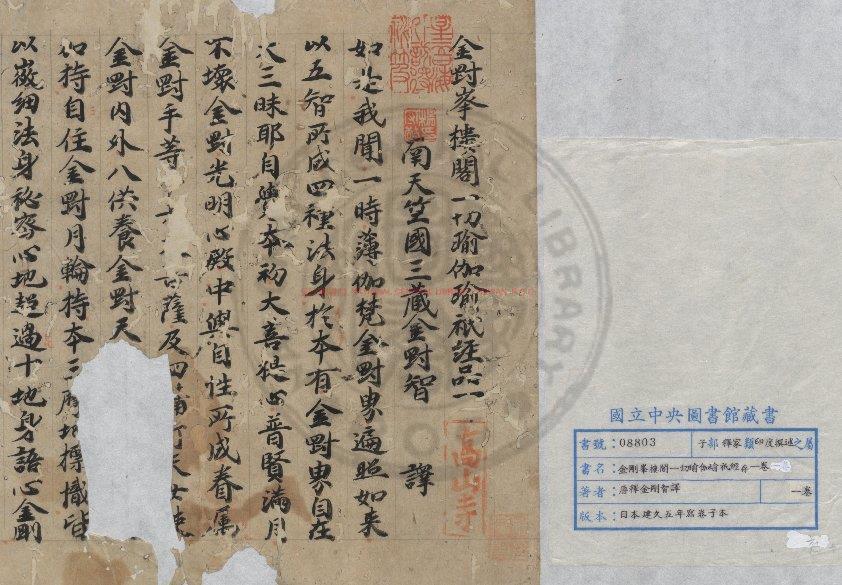 金剛峯樓閣一切瑜伽瑜祇經品一
南天竺國三藏金剛智 譯
如是我聞一時薄伽梵金剛界遍照如來
以五智所成四種法身於本有金剛界自在
大三昧耶自覺本初大菩提心普賢滿月
不壞金剛光明心殿中與自性所成眷屬
金剛手等 菩薩及四攝行天女使
金剛內外八供養金剛天
加持自住金剛月輪持本三摩地標幟皆
以微細法身秘密心地超過十地身語心金剛
高山寺
國立中央圖書館藏書
書號：08803 子部 釋家類印度撰述之屬
書名：金剛峯樓閣一切瑜伽瑜祇經存一卷
著者：唐釋金剛智譯 一卷
版本：日本建久五年寫卷子本
LIBRARY